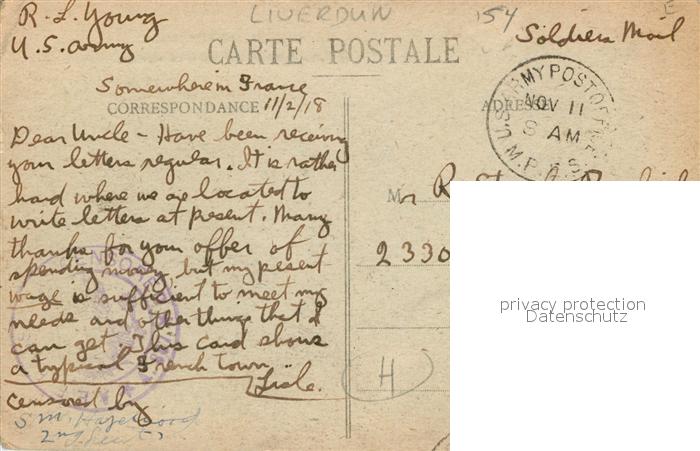 R. L. Young
U.S. army
LIVERDUN
154
Soldiers Mail
CARTE POSTALE
Somewhere in France
CORRESPONDANCE 11/2/18
ADRESSE
U.S. ARMY POST OFFICE
NOV 11
8 AM
M.P.
Dear Uncle - Have been receiving
your letters regular. It is rather
hard where we are located to
write letters at present. Many
thanks for your offer of
spending money, but my pesent
wage is sufficient to meet my
needs and other things that I
can get. This card shows
a typical French town
Lisle.
censored by
S M. Hazelwood
2nd Lieut
Mr R.
2330
H
privacy protection
Datenschutz